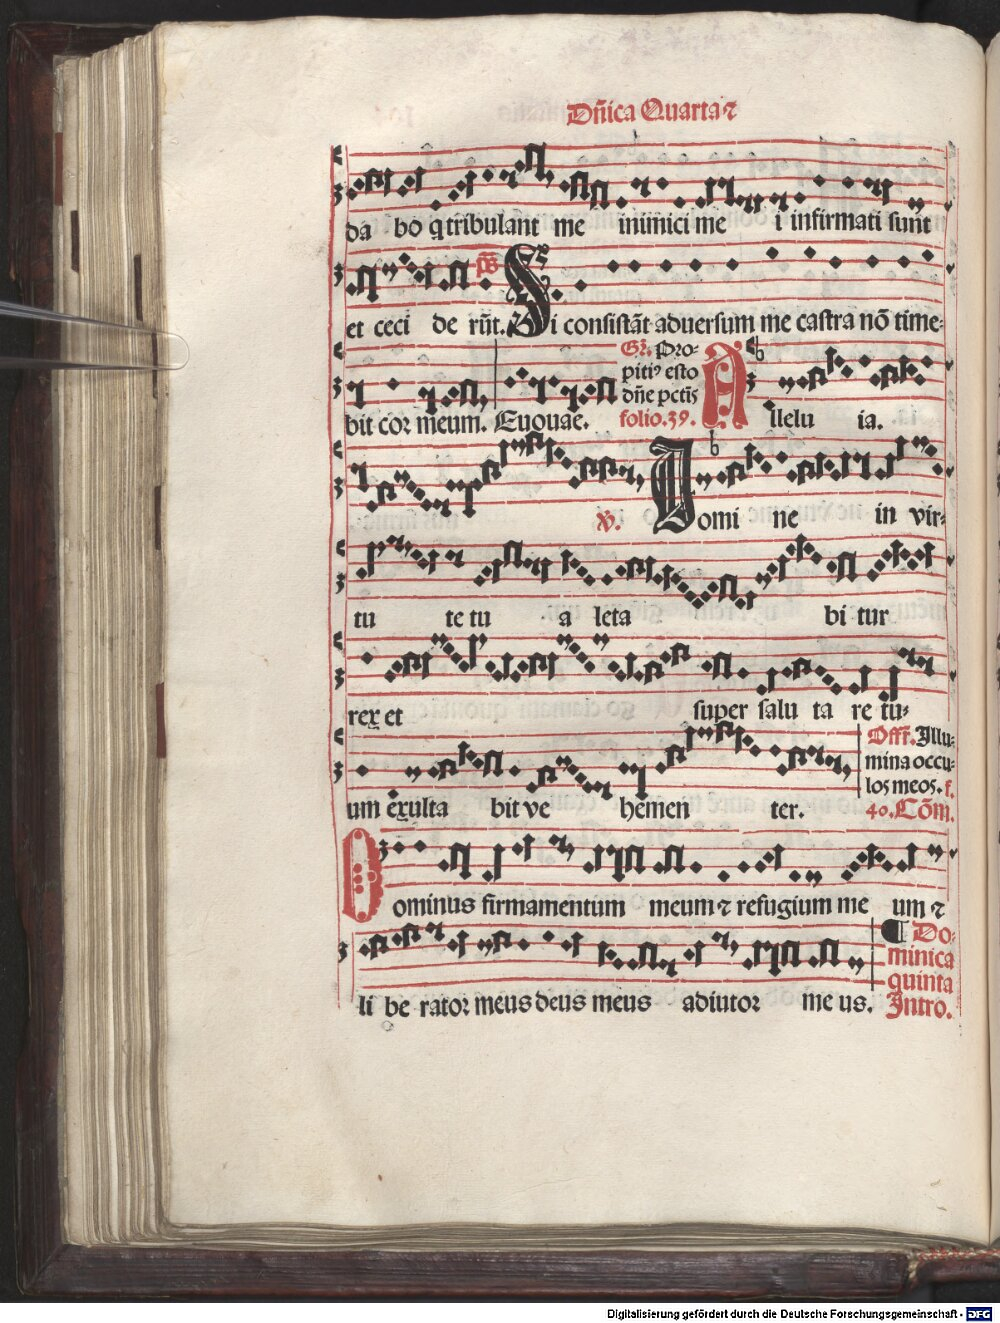 Dn̄ica Quarta ⁊
da bo q tribulant me inimici me i infirmati sunt
et ceci de rūt. ps̄ Si consistāt aduersum me castra nō time-
bit cor meum. Euouae. Gr. Pro-
pitiꝰ esto
dn̄e pctīs
folio.39. Allelu ia.
℣. Domi ne in vir-
tu te tu a leta bi tur
rex et super salu ta re tu-
um exulta bit ve hemen ter. Off. Illu-
mina occu-
los meos. f.
40. Cōm.
Dominus firmamentum meum ⁊ refugium me um ⁊
li be rator meus deus meus adiutor me us. ¶ Do-
minica
quinta
Intro.
Digitalisierung gefördert durch die Deutsche Forschungsgemeinschaft - DFG